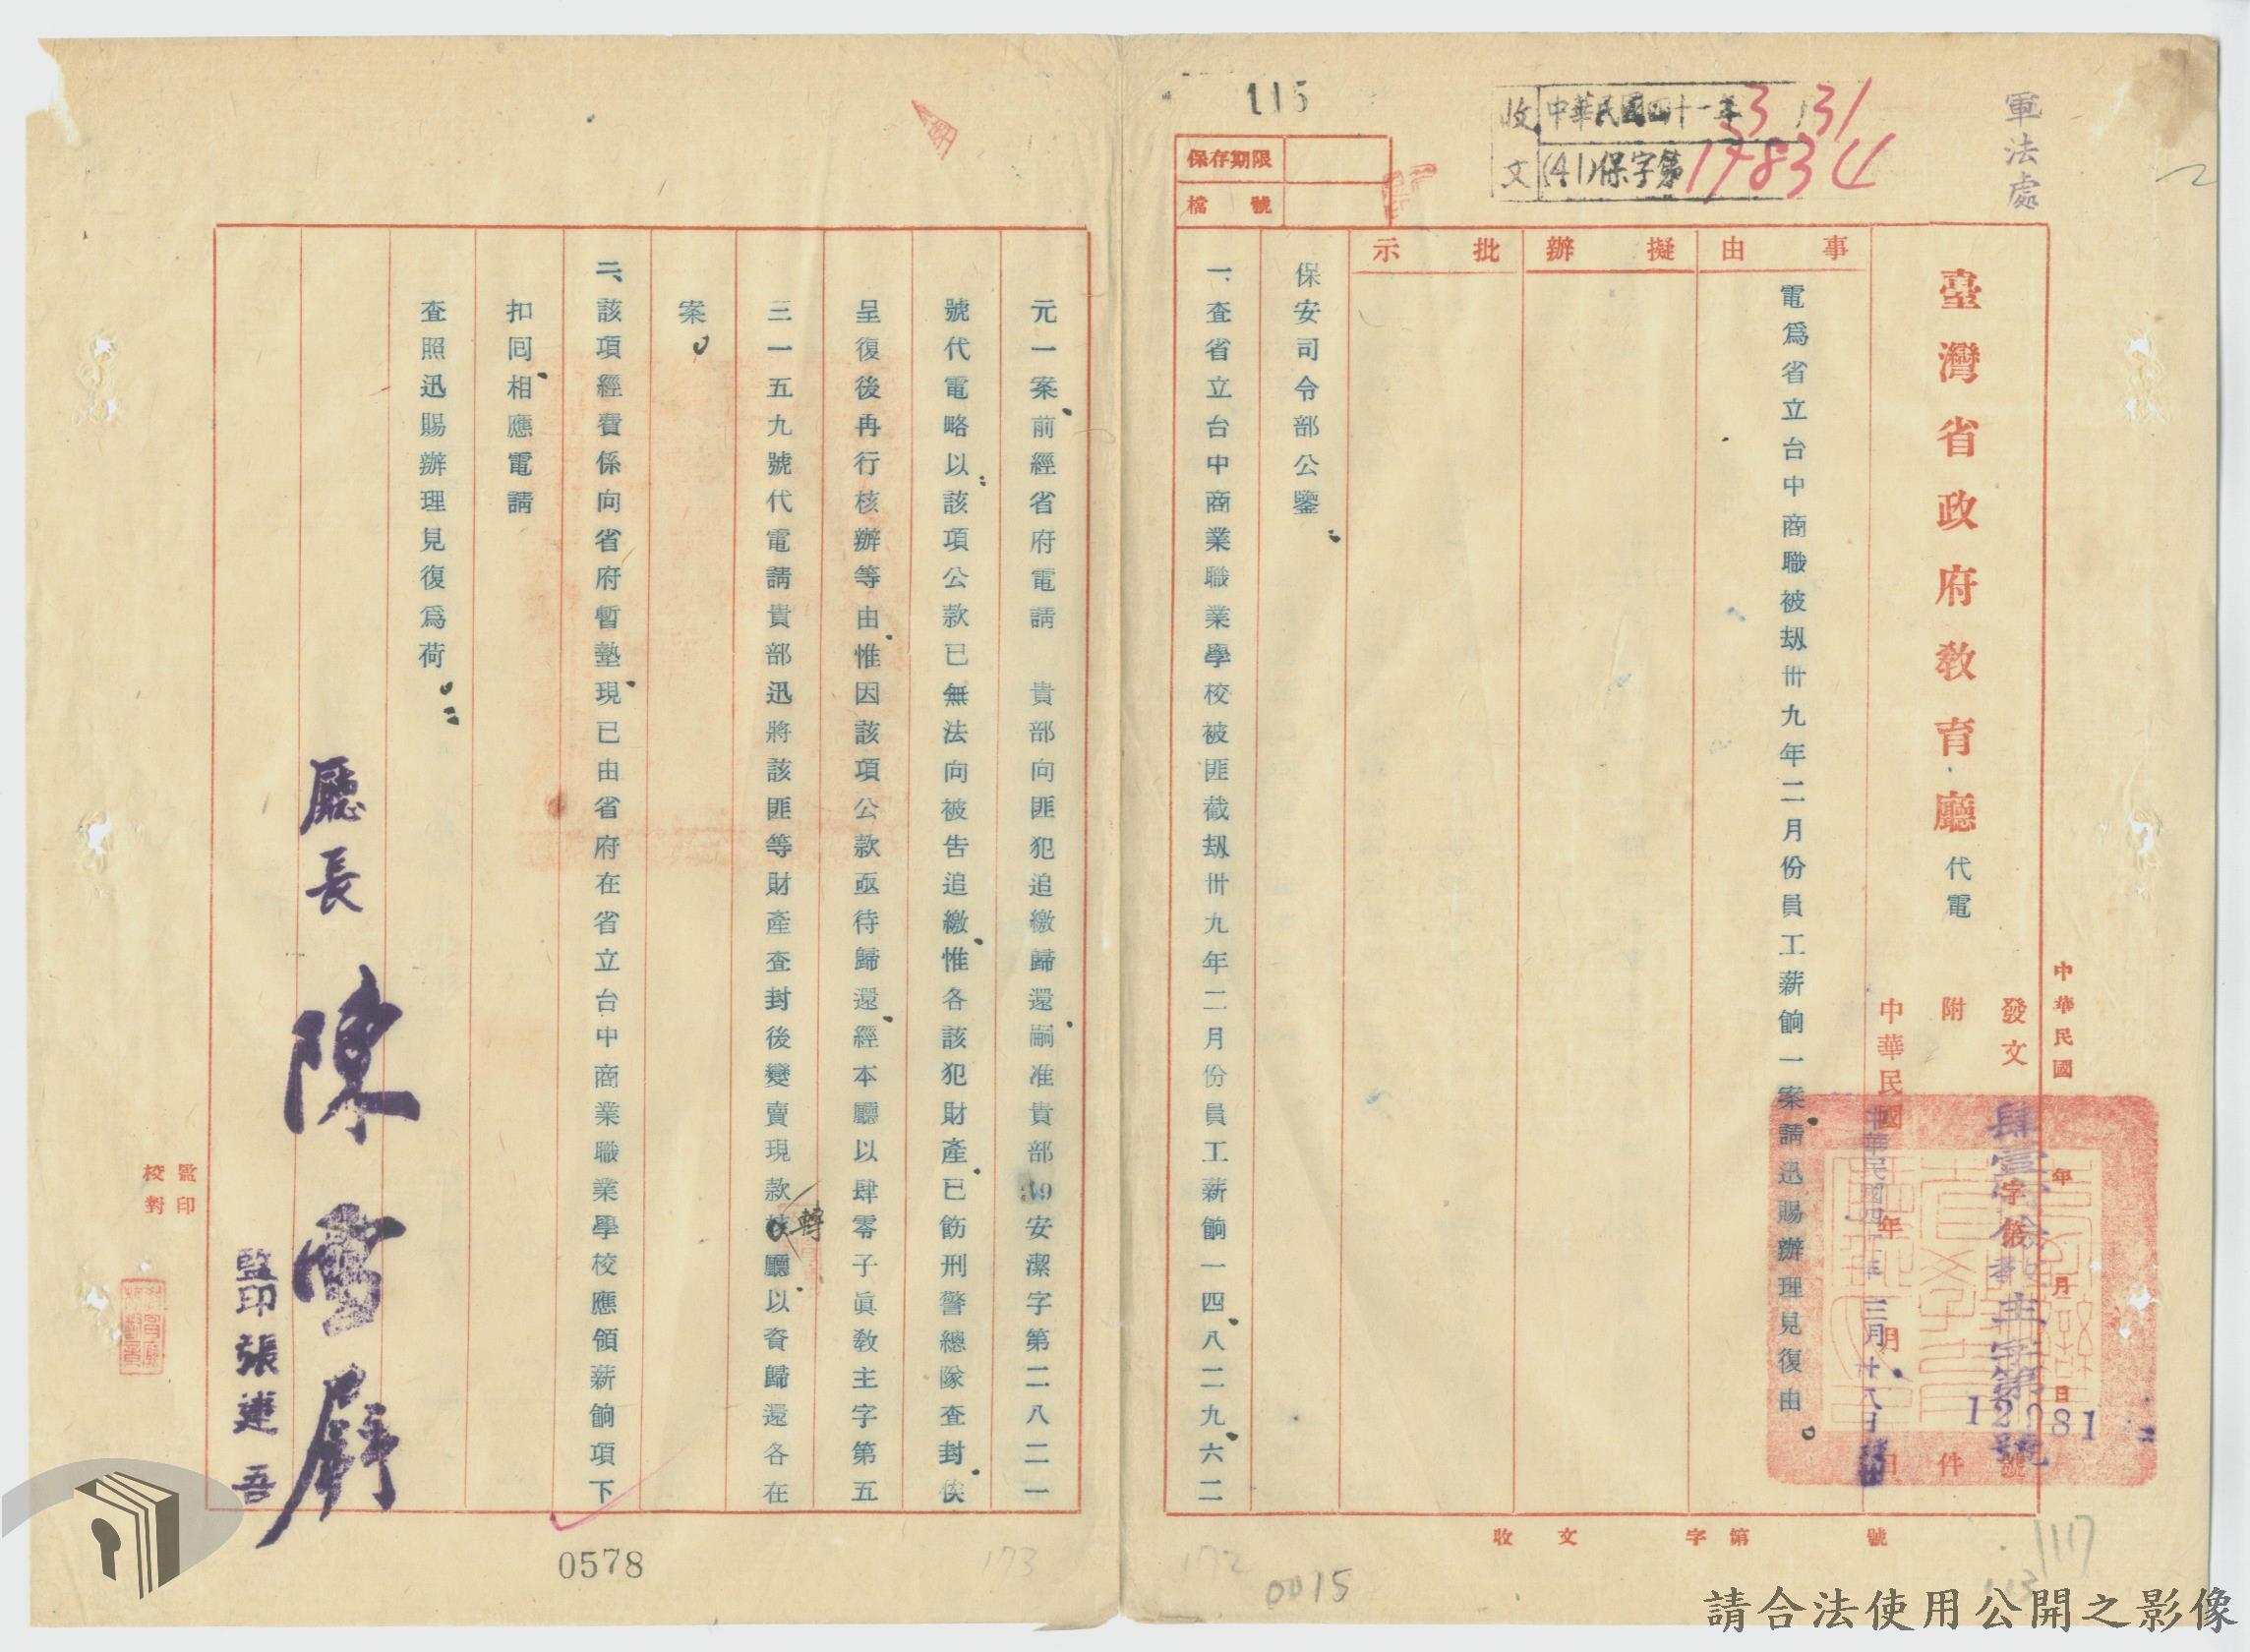 軍法處
收文 中華民國四十一年3 31
(41)保字第17834
115
保存期限
檔號
臺灣省政府教育廳代電
中華民國 年 月 日
發文 肆壹寅儉教主字第12081號
附件
中華民國四一年三月廿八日發出
事由
擬辦
批示
電爲省立台中商職被刼卅九年二月份員工薪餉一案請迅賜辦理見復由。
保安司令部公鑒：
一、查省立台中商業職業學校被匪截刼卅九年二月份員工薪餉一四、八二九、六二
元一案，前經省府電請　貴部向匪犯追繳歸還，嗣准貴部39安潔字第二八二一
號代電略以：該項公款已無法向被告追繳，惟各該犯財產，已飭刑警總隊查封，俟
呈復後再行核辦等由，惟因該項公款亟待歸還，經本廳以肆零子眞教主字第五
三一五九號代電請貴部迅將該匪等財產查封後變賣現款轉廳，以資歸還各在
案。
二、該項經費係向省府暫墊，現已由省府在省立台中商業職業學校應領薪餉項下
扣囘，相應電請
查照迅賜辦理見復爲荷。：
廳長 陳雪屏
監印 張建吾
監印
校對
收文 字第 號
0578
173
172
0015
117
請合法使用公開之影像